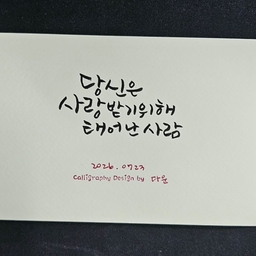 당신은
사랑받기위해
태어난 사람
2026. 0723
Calligraphy Design by 다운